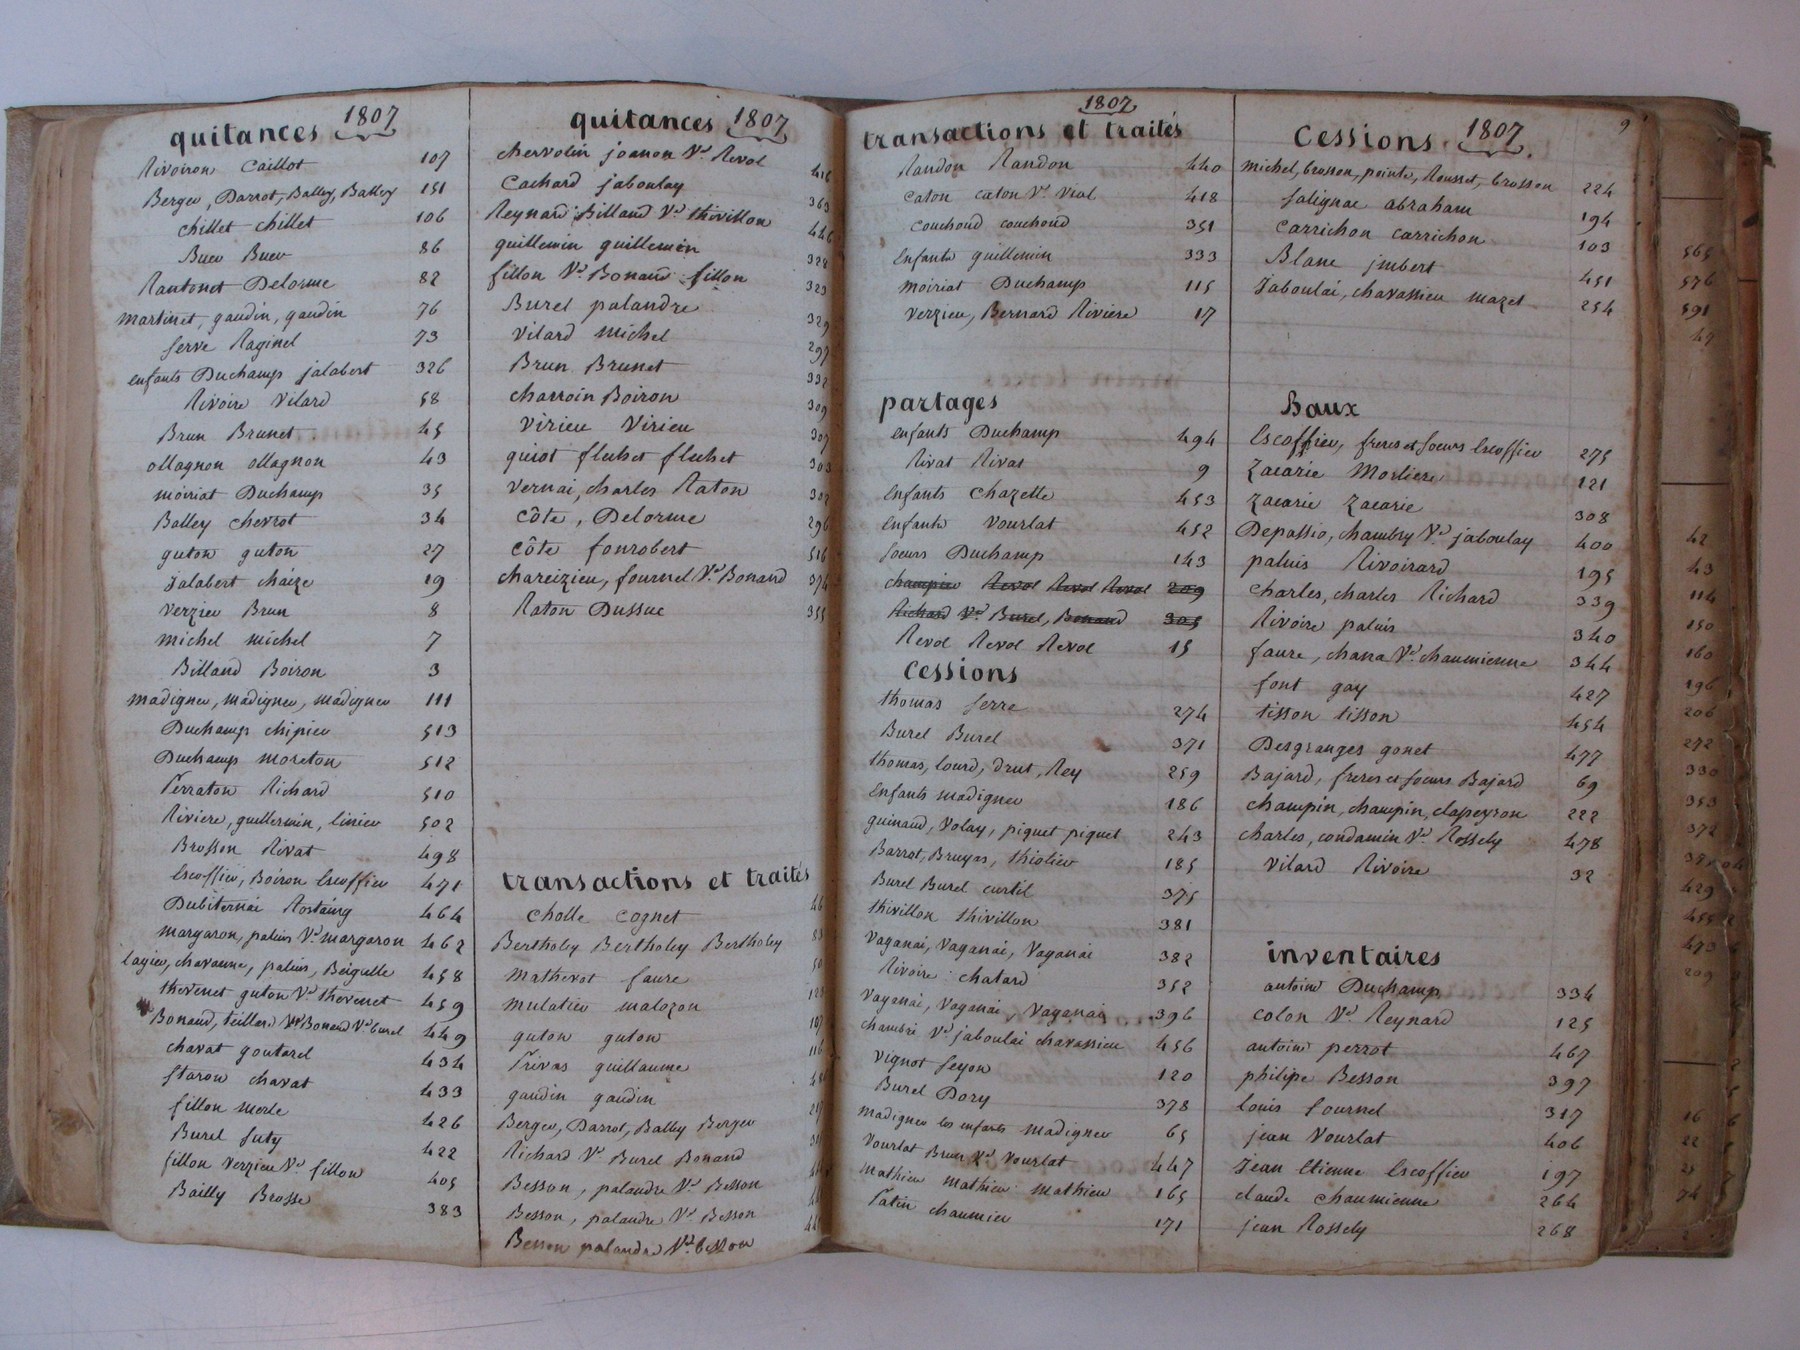 quitances 1807
Rivoiron Caillot 107
Berger, Parrot, Balley, Balley 151
chillet chillet 106
Buer Buer 86
Rantonet Delorme 82
martinet, gaudin, gaudin 76
serve Raginel 73
enfants Duchamp jalabert 326
Rivoire Vilard 58
Brun Brunet 45
ollagnon ollagnon 43
moiriat Duchamp 35
Balley Chevrot 34
guton guton 27
Jalabert chaize 19
Verzieu Brun 8
michel michel 7
Billand Boiron 3
madignier, madignier, madignier 111
Duchamp chipier 513
Duchamp moreton 512
Terraton Richard 510
Riviere, guillermin, linier 502
Brosson Rivat 498
Escoffier, Boiron Escoffier 471
Dubiternai Rostaing 464
margaron, paluis Ve. margaron 462
layier, chavanne, paluis, Beigulle 458
thevenet guton Ve. thevenet 459
Bonand, teillard Ve Bonand Ve. burel 449
chavat goutarel 434
staron chavat 433
fillon merle 426
Burel suty 422
fillon Verzieu Ve. fillon 405
Bailly Brosse 383
quitances 1807
chervolin joanon Ve. Revol 416
Cachard jaboulay 363
Reynard Billand Ve. thivillon 446
guillemin guillemin 328
fillon Ve. Bonand fillon 323
Burel palandre 329
Vilard michel 297
Brun Brunet 332
charroin Boiron 309
Virieu Virieu 307
guiot fluchet fluchet 303
Vernai, charles Raton 302
côte, Delorme 296
côte fonrobert 516
chareizieu, fournel Ve. Bonand 374
Raton Dussuc 355
transactions et traités
cholle cognet 46
Bertholey Bertholey Bertholey 83
Mathevot faure 50
mulatier malozon
guton guton 107
Privas guillaume 116
gaudin gaudin
Berger, Parrot, Balley Berger
Richard Ve. Burel Bonand
Besson, palandre Ve. Besson
Besson, palandre Ve. Besson
Besson palandre Ve. besson
1807
transactions et traités
Randon Randon 440
Caton caton Ve. Vial 418
couchoud couchoud 351
Enfants guillemin 333
moiriat Duchamp 115
Verzieu, Bernard Riviere 17
partages
enfants Duchamp 494
Rivat Rivat 9
enfants chazelle 453
enfants Vourlat 452
soeurs Duchamp 143
champier Revol Revol Revol 209
Richard Ve. Burel, Bonand 305
Revol Revol Revol 15
Cessions
thomas serre 274
Burel Burel 371
thomas, lourd, drut, Rey 259
Enfants madignier 186
guinand, Volay, piquet piquet 243
Barrot, Bruyas, thiolier 185
Burel Burel curtil 375
thivillon thivillon 381
Vaganai, Vaganai, Vaganai 382
Rivoire chatard 352
Vaganai, Vaganai, Vaganai 396
chambri Ve. jaboulai chavassieu 456
Vignot seyon 120
Burel Dory 378
madignier les enfants madignier 65
Vourlat Brun Ve. Vourlat 447
mathieu mathieu mathieu 165
Patin chaumier 171
Cessions 1807 9
michel, brosson, pointe, Rousset, brosson 224
salignac abraham 194
carrichon carrichon 103
Blanc jmbert 451
Jaboulai, chavassieu mazet 254
Baux
Escoffier, freres et soeurs Escoffier 275
Zacarie Morliere 121
Zacarie Zacarie 308
Depassio, chambry Ve. jaboulay 400
paluis Rivoirard 195
Charles, charles Richard 339
Rivoire paluis 340
faure, chana Ve. chaumienne 344
font gay 427
tisson tisson 454
Desgranges gonet 477
Bajard, freres et soeurs Bajard 69
champin, champin, clapeyron 222
charles, condamin Ve. Rossely 478
Vilard Rivoire 32
inventaires
antoine Duchamp 334
colon Ve. Reynard 125
antoine perrot 467
philipe Besson 397
louis fournel 317
jean Vourlat 406
Jean Etienne Escoffier 197
claude chaumienne 264
jean Rossely 268
565
576
591
47
42
43
114
150
160
196
206
272
330
353
372
429
455
473
209
16
22